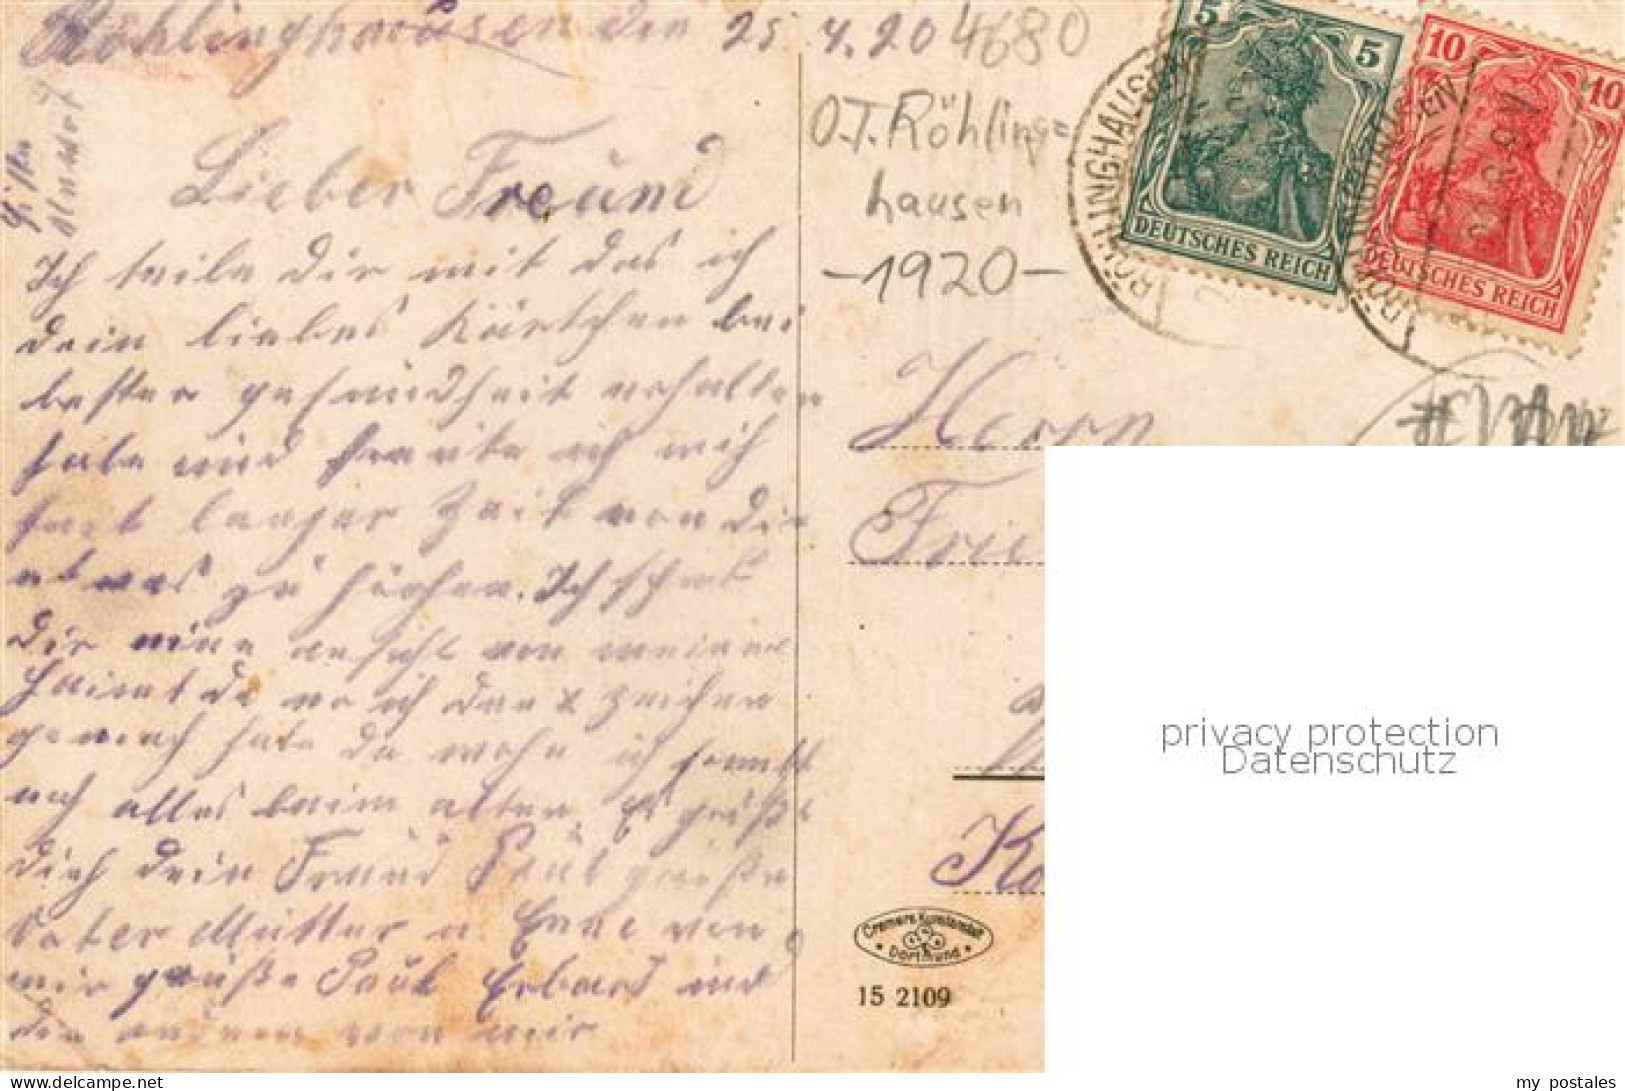 Röhlinghausen den 25.4.20
4680
O.T. Röhling=
hausen
-1920-
5
5
DEUTSCHES REICH
10
10
DEUTSCHES REICH
RÖHLINGHAUSEN
RÖHLINGHAUSEN
Bitte
Antwort
Lieber Freund
Ich teile dir mit das ich
dein liebes Kärtchen bei
bester gesundheit erhalten
habe und freute ich mich
seit langer Zeit von dir
etwas zu hören. Ich schick
dir eine ansicht von meiner
Heimt da wo ich das x zeichen
gemach habe da wohn ich sonst
noch alles beim alten. Es grüßt
dich dein Freund Paul grüße
Vater Mutter u von
mir grüße Paul und
die andern von mir
Herrn
Frie
Ko
Cramers Kunstanstalt
Dortmund
15 2109
privacy protection
Datenschutz
www.delcampe.net
my_postales